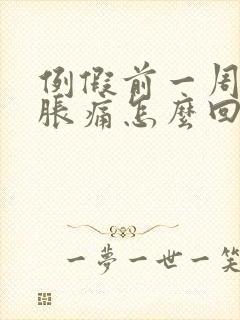 例假前一周
脹痛怎麼回
一夢一世一笑